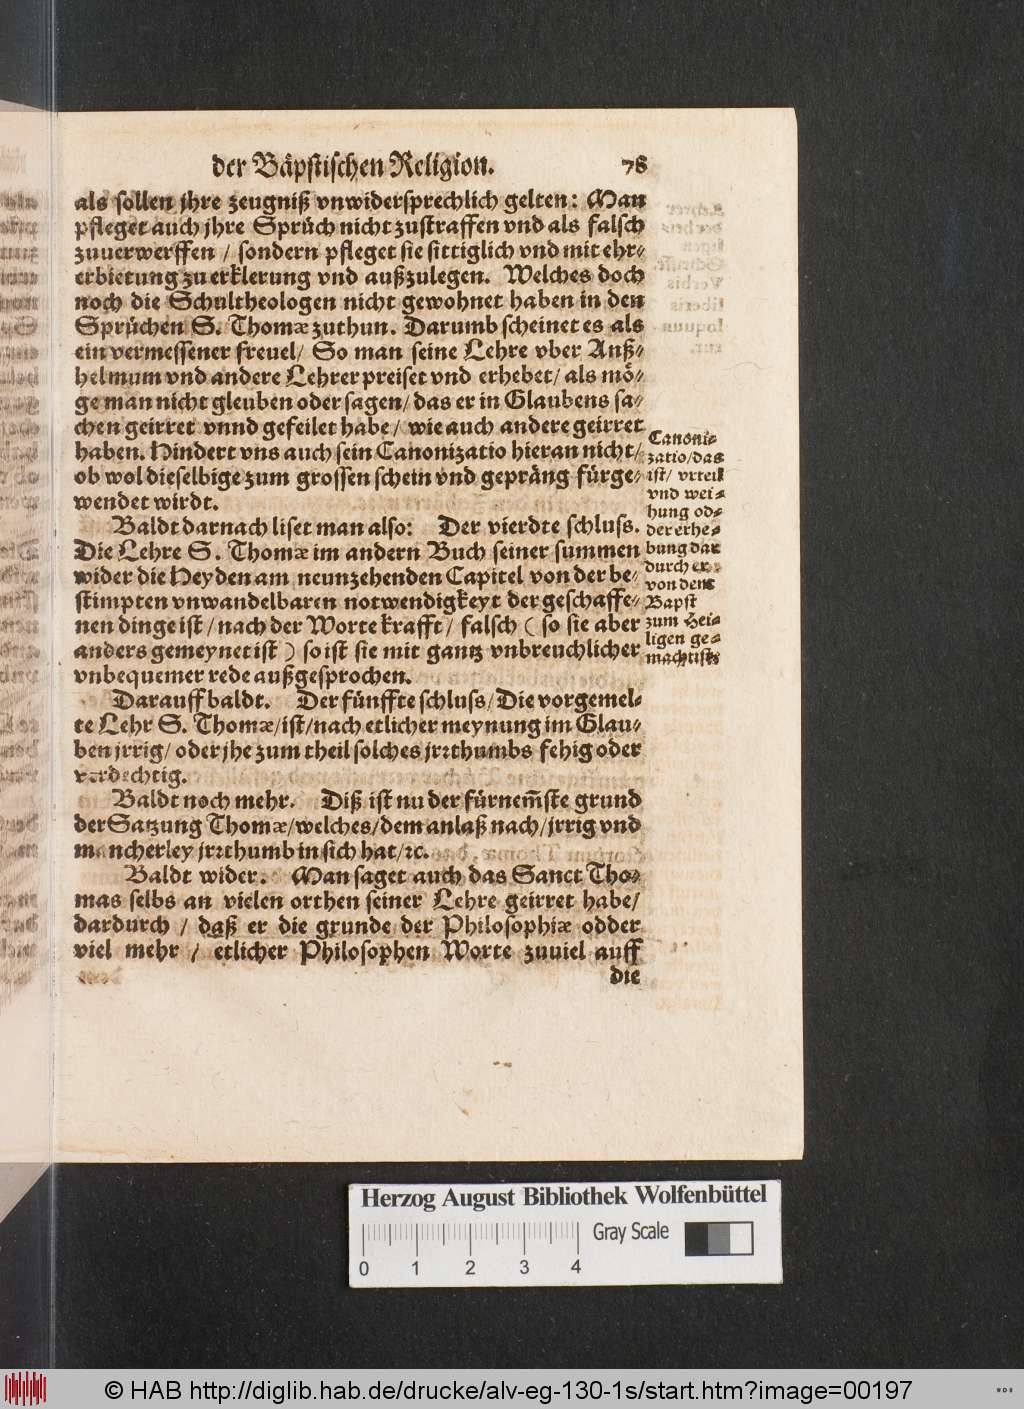 der Bäpstischen Religion. 78
als sollen jhre zeugniß vnwidersprechlich gelten: Man
pfleget auch jhre Sprüch nicht zustraffen vnd als falsch
zuuerwerffen / sondern pfleget sie sittiglich vnd mit ehr⸗
erbietung zu erklerung vnd außzulegen. Welches doch
noch die Schultheologen nicht gewohnet haben in den
Sprüchen S. Thomæ zuthun. Darumb scheinet es als
ein vermessener freuel/ So man seine Lehre vber Anß⸗
helmum vnd andere Lehrer preiset vnd erhebet/ als mö⸗
ge man nicht gleuben oder sagen/ das er in Glaubens sa⸗
chen geirret vnnd gefeilet habe/ wie auch andere geirret
haben. Hindert vns auch sein Canonizatio hieran nicht/
ob wol dieselbige zum grossen schein vnd gepräng fürge⸗
wendet wirdt.
Canoni⸗
zatio/das
ist/ vrteil
vnd wei⸗
hung od⸗
der erhe⸗
bung dar
durch er
von dem
Bapst
zum Hei⸗
ligen ge⸗
macht ist
Baldt darnach liset man also: Der vierdte schluss.
Die Lehre S. Thomæ im andern Buch seiner summen
wider die Heyden am neunzehenden Capitel von der be⸗
stimpten vnwandelbaren notwendigkeyt der geschaffe⸗
nen dinge ist / nach der Worte krafft/ falsch ( so sie aber
anders gemeynet ist ) so ist sie mit gantz vnbreuchlicher
vnbequemer rede außgesprochen.
Darauff baldt. Der fünffte schluss/ Die vorgemel⸗
te Lehr S. Thomæ/ist/nach etlicher meynung im Glau⸗
ben jrrig/ oder jhe zum theil solches jrꝛthumbs fehig oder
verdechtig.
Baldt noch mehr. Diß ist nu der fürnem̃ste grund
der Satzung Thomæ/welches/dem anlaß nach/jrrig vnd
mancherley jrꝛthumb in sich hat/ꝛc.
Baldt wider. Man saget auch das Sanct Tho⸗
mas selbs an vielen orthen seiner Lehre geirret habe/
dardurch / daß er die grunde der Philosophiæ odder
viel mehr / etlicher Philosophen Worte zuuiel auff
die
Herzog August Bibliothek Wolfenbüttel
0 1 2 3 4 Gray Scale
© HAB http://diglib.hab.de/drucke/alv-eg-130-1s/start.htm?image=00197